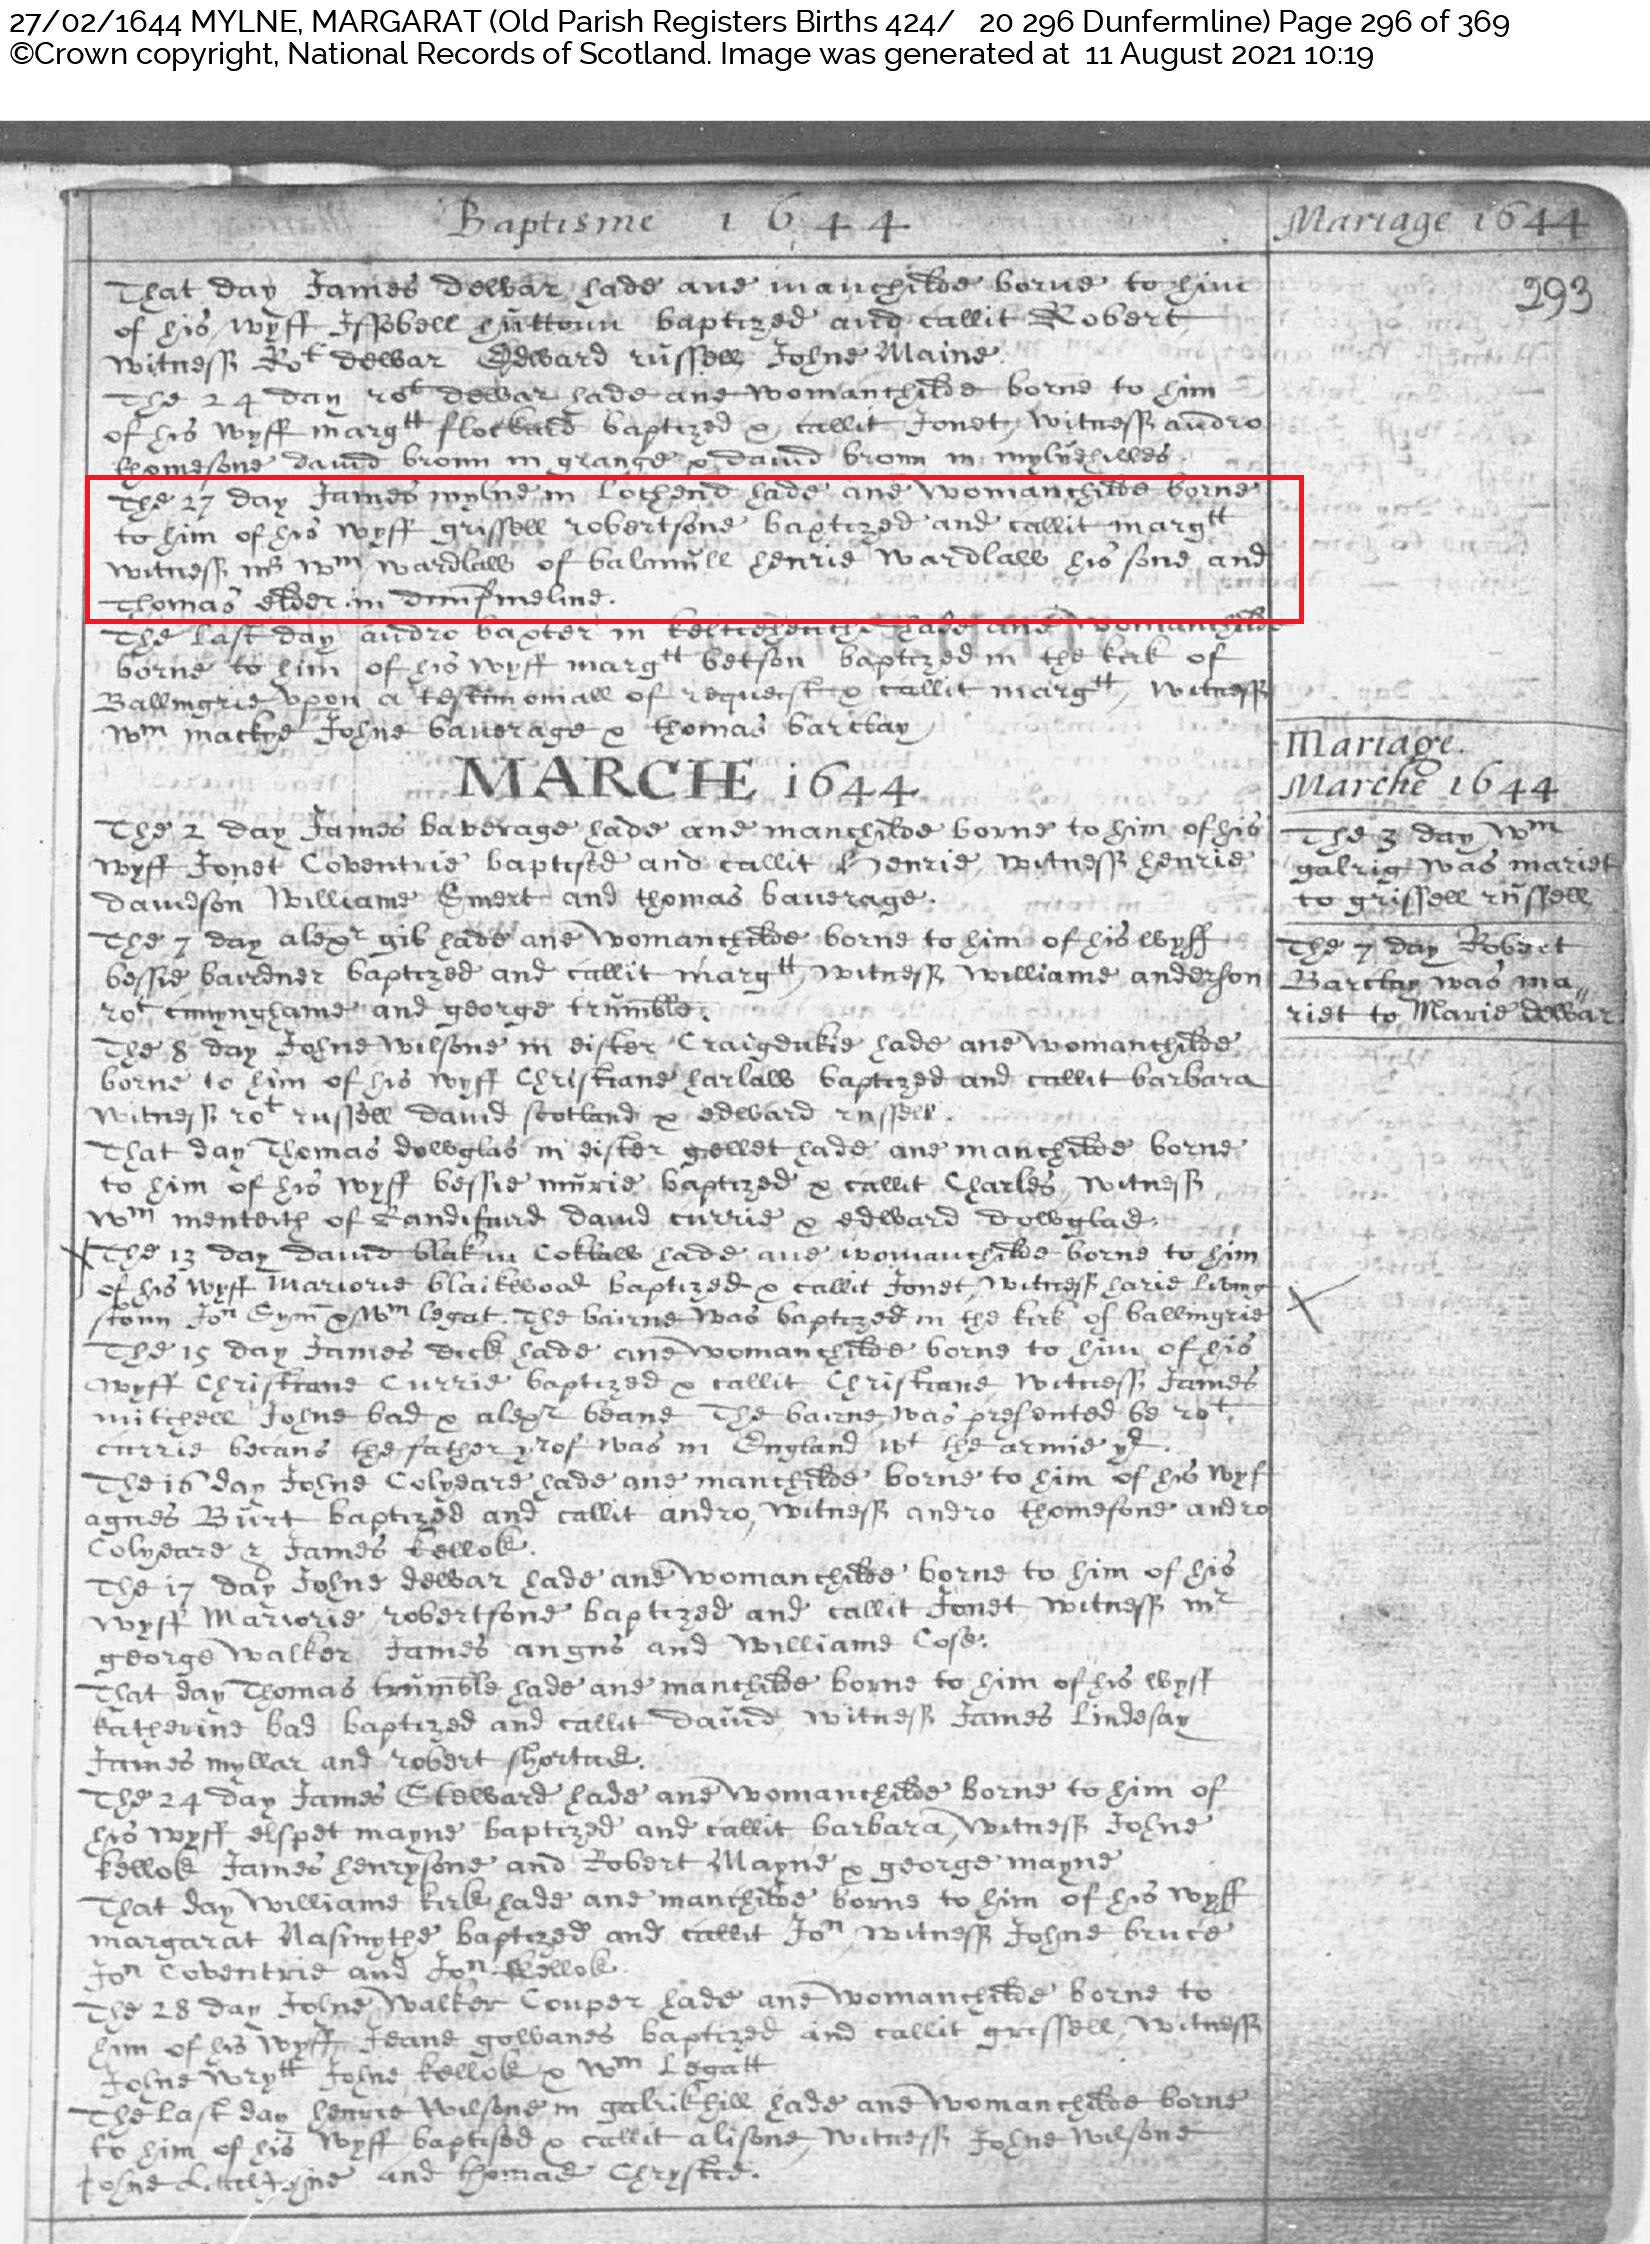 27/02/1644 MYLNE, MARGARAT (Old Parish Registers Births 424/   20 296 Dunfermline) Page 296 of 369
©Crown copyright, National Records of Scotland. Image was generated at  11 August 2021 10:19
Baptisme 1644
Mariage 1644
293
That day James dewar hade ane manchilde borne to him
of his wyff Issobell huttoun baptized and callit Robert
witness Rot dewar Edward russell Johne Maine.
The 24 day rot dewar hade ane womanchilde borne to him
of his wyff margtt flockard baptized & callit Jonet, witness andro
thomesone david broun in grange & david broun in mylnehilles.
The 27 day James mylne in Lochend hade ane womanchilde borne
to him of his wyff grissell robertsone baptized and callit margtt
witness mr wm wardlaw of balmull henrie wardlaw his sone and
Thomas elder in dumfmeline.
The last day andro baxter in hade ane womanchilde
borne to him of his wyff margtt betson baptized in the kirk of
Ballingrie vpon a testimoniall of requeist & callit margtt, witness
wm mackye Johne bauerage & thomas barclay
MARCHE 1644
The 2 day James baverage hade ane manchilde borne to him of his
wyff Jonet Coventrie baptised and callit Henrie, witness henrie
davidson Williame Emert and thomas bauerage.
The 7 day alexr gib hade ane womanchilde borne to him of his wyff
bessie bairdner baptized and callit margtt, witness williame anderson
rot cunynghame and george trumble.
The 8 day Johne wilsone in eister Craigdukie hade ane womanchilde
borne to him of his wyff Christiane harlaw baptized and callit barbara
witness rot russell david scotland & edward russell.
That day Thomas dowglas in eister gellet hade ane manchilde borne
to him of his wyff bessie murie baptized & callit Charles, witness
wm menteith of Randifuird david currie & edward dowglas.
The 13 day david blak in Coklaw hade ane womanchilde borne to him
of his wyff Mariorie blaikwood baptized & callit Jonet, witness harie living
stoun Jon Sym & Wm legat. The bairne was baptized in the kirk of ballingrie
The 15 day James dick hade ane womanchilde borne to him of his
wyff Christiane Currie baptized & callit Christiane, witness James
mitchell Johne bad & alexr beane The bairne was presented be rot.
currie becaus the father yrof was in England wt the armie yr.
The 16 day Johne Colyeare hade ane manchilde borne to him of his wyf
agnes Burt baptized and callit andro, witness andro thomesone andro
Colyeare & James kellok.
The 17 day Johne dewar hade ane womanchilde borne to him of his
wyff Mariorie robertsone baptized and callit Jonet witness mr
george walker James angus and Williame Cose.
That day Thomas trumble hade ane manchilde borne to him of his wyff
katherine bad baptized and callit david, witness James Lindesay
James myllar and robert shortus.
The 24 day James Steward hade ane womanchilde borne to him of
his wyff elspet mayne baptized and callit barbara, witness Johne
kellok James henrysone and Robert Mayne & george mayne
That day Williame kirk hade ane manchilde borne to him of his wyff
margarat Nasmythe baptized and callit Jon witness Johne bruce
Jon Coventrie and Jon kellok
The 28 day Johne Walker Couper hade ane womanchilde borne to
him of his wyff Jeane gowanes baptized and callit grissell, witness
Johne wrytt Johne kellok & wm Legatt
The last day henrie wilsone in galrikhill hade ane womanchilde borne
to him of his wyff baptised & callit alisone, witness Johne wilsone
Johne and thomas Chrystie.
Mariage.
Marche 1644
The 3 day wm
galrig was mariet
to grissell russell
The 7 day Robert
Barclay was ma„
riet to Marie dewar